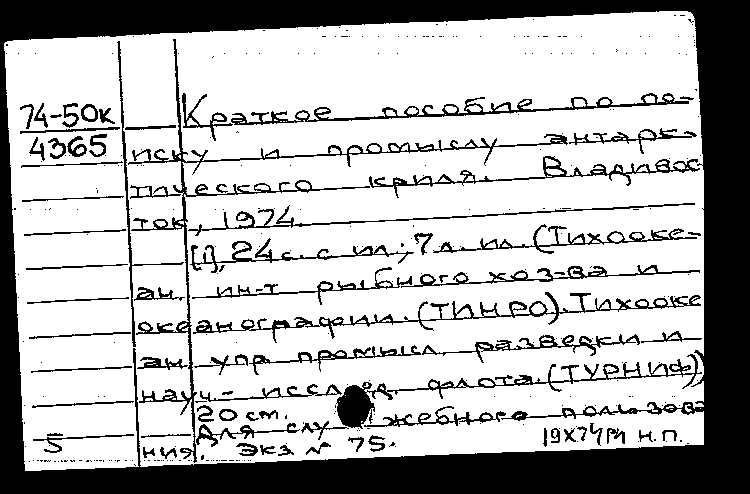 74-50к
4365
Краткое пособие по по-
иску и промыслу антарк-
тического криля. Владивос
ток, 1974.
[1], 24 с. с ил.; 7 л. ил. (Тихооке-
ан. ин-т рыбного хоз-ва и
океанографии. (ТИНРО). Тихооке
ан. упр промысл. разведки и
науч.- исслед. флота. (ТУРНИФ))
20 см.
Для служебного пользова
ния. Экз № 75.
5
Н.П.